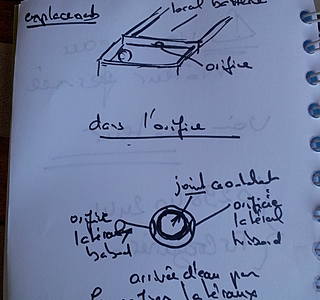 emplacement
local batterie
orifice
dans l'orifice
joint caoutchouc
orifice
latéral
babord
orifice
latéral
tribord
arrivée d'eau par
latéraux